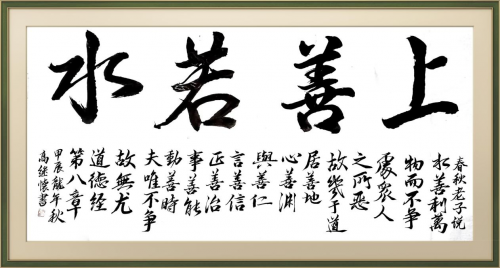 上善若水
春秋老子說
水善利萬
物而不爭
處衆人
之所惡
故幾于道
居善地
心善淵
與善仁
言善信
正善治
事善能
動善時
夫唯不争
故無尤
道德經
第八章
甲辰龍年秋
高继懷書